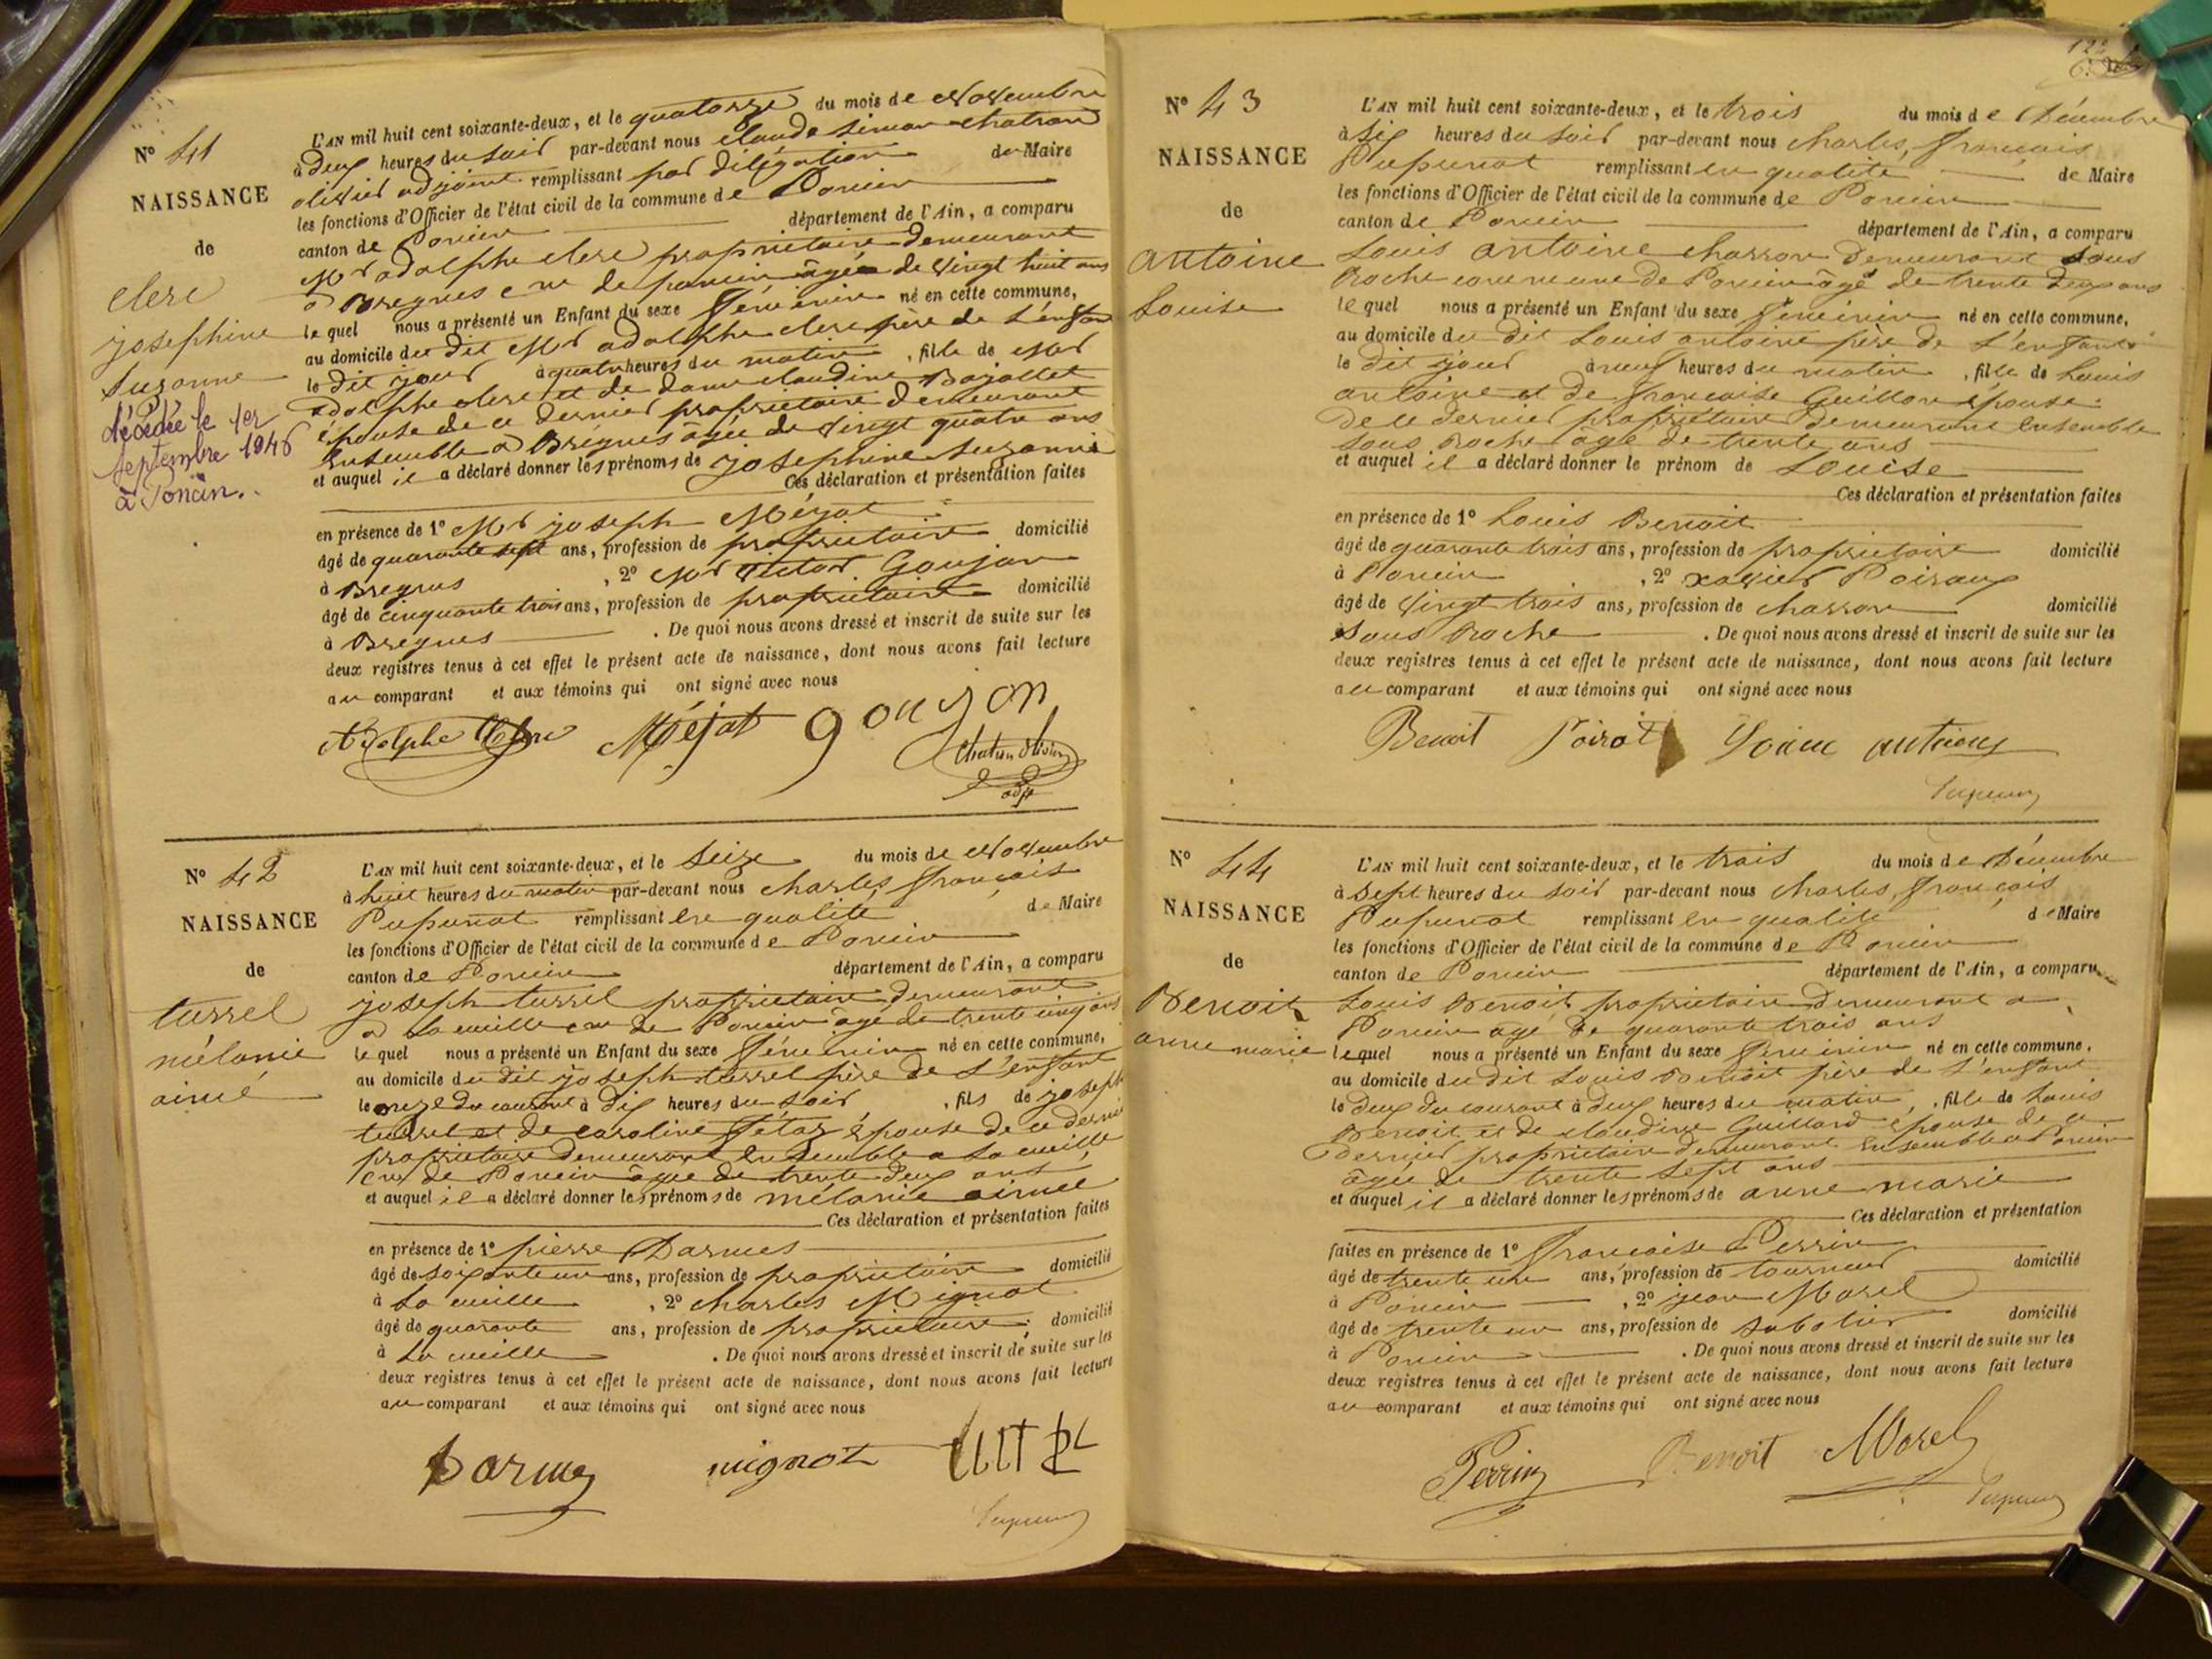 N° 41
NAISSANCE
de
Clerc
josephine
Suzanne
décédée le 1er
septembre 1946
à Poncin.
L'AN mil huit cent soixante-deux, et le quatorze du mois de Novembre
à deux heures du soir par-devant nous Claude Simon Chatron
olivier adjoint remplissant par délégation de Maire
les fonctions d'Officier de l'état civil de la commune de Poncin
canton de Poncin département de l'Ain, a comparu
Mr adolphe clerc propriétaire demeurant
à Bregnes cne de poncin âgé de vingt huit ans
lequel nous a présenté un Enfant du sexe féminin né en cette commune,
au domicile du dit Mr adolphe clerc père de l'enfant
le dit jour à quatre heures du matin, fille de Mr
adolphe clerc et de dame claudine
épouse de ce dernier propriétaire demeurant
ensemble à Brégnes âgée de vingt quatre ans
et auquel il a déclaré donner les prénoms de josephine Suzanne
Ces déclaration et présentation faites
en présence de 1° Mr joseph Méjat
âgé de quarante sept ans, profession de propriétaire domicilié
à Bregnes, 2° Mr victor Goujon
âgé de cinquante trois ans, profession de propriétaire domicilié
à Bregnes. De quoi nous avons dressé et inscrit de suite sur les
deux registres tenus à cet effet le présent acte de naissance, dont nous avons fait lecture
au comparant et aux témoins qui ont signé avec nous
Adolphe Clerc Méjat goujon
Chatron Olivier
adjt
N° 42
NAISSANCE
de
turrel
mélanie
aimé
L'AN mil huit cent soixante-deux, et le seize du mois de Novembre
à huit heures du matin par-devant nous Charles, françois
Pupunat remplissant en qualité de Maire
les fonctions d'Officier de l'état civil de la commune de Poncin
canton de Poncin département de l'Ain, a comparu
joseph turrel propriétaire demeurant
à la cueille cne de Poncin âgé de trente cinq ans
lequel nous a présenté un Enfant du sexe féminin né en cette commune,
au domicile du dit joseph turrel père de l'enfant
le onze du courant à dix heures du soir, fils de joseph
turrel et de caroline épouse de ce dernier
propriétaire demeurant ensemble a la cueille
cne de Poncin âgée de trente deux ans
et auquel il a déclaré donner les prénoms de mélanie aimée
Ces déclaration et présentation faites
en présence de 1° pierre Darmes
âgé de soixante un ans, profession de propriétaire domicilié
à la cueille, 2° charles Mignot
âgé de quarante ans, profession de propriétaire domicilié
à la cueille. De quoi nous avons dressé et inscrit de suite sur les
deux registres tenus à cet effet le présent acte de naissance, dont nous avons fait lecture
au comparant et aux témoins qui ont signé avec nous
Darmes mignot
N° 43
NAISSANCE
de
antoine
Louise
L'AN mil huit cent soixante-deux, et le trois du mois de Décembre
à six heures du soir par-devant nous charles, françois
Pupunat remplissant en qualité de Maire
les fonctions d'Officier de l'état civil de la commune de Poncin
canton de Poncin département de l'Ain, a comparu
Louis antoine charron demeurant sous
Roche commune de Poncin âgé de trente deux ans
lequel nous a présenté un Enfant du sexe féminin né en cette commune,
au domicile du dit Louis antoine père de l'enfant
le dit jour à neuf heures du matin, fille de Louis
antoine et de françoise Guillon épouse
de ce dernier propriétaire demeurant ensemble
sous Roche age de trente ans
et auquel il a déclaré donner le prénom de Louise
Ces déclaration et présentation faites
en présence de 1° Louis Benoit
âgé de quarante trois ans, profession de propriétaire domicilié
à Poncin, 2° xavier Poiraux
âgé de vingt trois ans, profession de charron domicilié
sous Roche. De quoi nous avons dressé et inscrit de suite sur les
deux registres tenus à cet effet le présent acte de naissance, dont nous avons fait lecture
au comparant et aux témoins qui ont signé avec nous
Benoit Poirot
N° 44
NAISSANCE
de
Benoit
anne marie
L'AN mil huit cent soixante-deux, et le trois du mois de Décembre
à sept heures du soir par-devant nous charles, françois
Pupunat remplissant en qualité de Maire
les fonctions d'Officier de l'état civil de la commune de Poncin
canton de Poncin département de l'Ain, a comparu
Louis Benoit propriétaire demeurant a
Poncin agé de quarante trois ans
lequel nous a présenté un Enfant du sexe féminin né en cette commune.
au domicile du dit Louis Benoit père de l'enfant
le deux du courant à deux heures du matin, fille de Louis
Benoit et de claudine Guillard épouse de ce
dernier propriétaire demeurant ensemble a Poncin
âgée de trente sept ans
et auquel il a déclaré donner les prénoms de anne marie
Ces déclaration et présentation
faites en présence de 1° françoise Perrin
âgé de trente un ans, profession de tourneur domicilié
à Poncin, 2° jean Morel
âgé de trente un ans, profession de sabotier domicilié
à Poncin. De quoi nous avons dressé et inscrit de suite sur les
deux registres tenus à cet effet le présent acte de naissance, dont nous avons fait lecture
au comparant et aux témoins qui ont signé avec nous
Perrin Benoit Morel